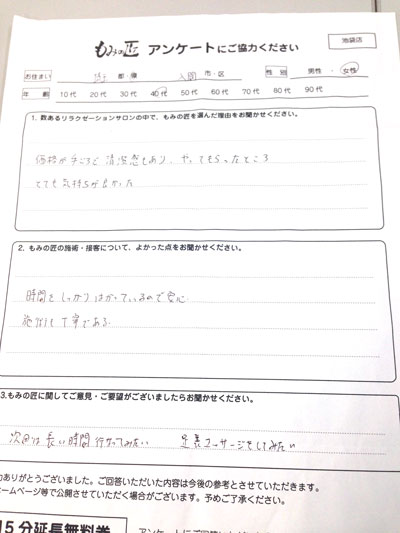 もみの匠 アンケートにご協力ください
池袋店
お住まい 埼玉 都・県 入間 市・区 性別 男性・女性
年齢 10代 20代 30代 40代 50代 60代 70代 80代 90代
1. 数あるリラクゼーションサロンの中で、もみの匠を選んだ理由をお聞かせください。
価格が手ごろで清潔感もあり、やってもらったところ
とても気持ちが良かった
2. もみの匠の施術・接客について、よかった点をお聞かせください。
時間をしっかりはかっているので安心
施術も丁寧である
3.もみの匠に関してご意見・ご要望がございましたらお聞かせください。
次回は長い時間行なってみたい 足裏マッサージをしてみたい
力ありがとうございました。ご回答いただいた内容は今後の参考とさせていただきます。
ームページ等で公開させていただく場合がございます。予めご了承ください。
15分延長無料券
アンケートにご回答いただいた